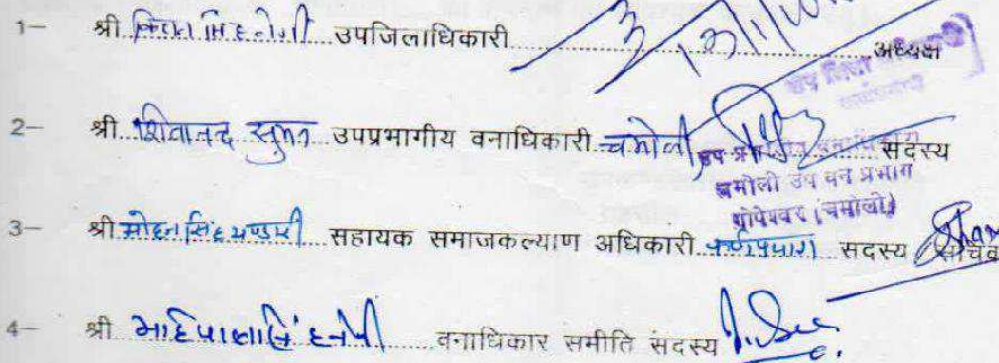 1– श्री किशन सिंह नेगी उपजिलाधिकारी अध्यक्ष
2– श्री शिवानन्द उपप्रभागीय वनाधिकारी चमोली सदस्य
चमोली उप वन प्रभाग
गोपेश्वर (चमोली)
3– श्री मोहन सिंह भण्डारी सहायक समाजकल्याण अधिकारी कर्णप्रयाग सदस्य सचिव
4– श्री वनाधिकार समीति सदस्य